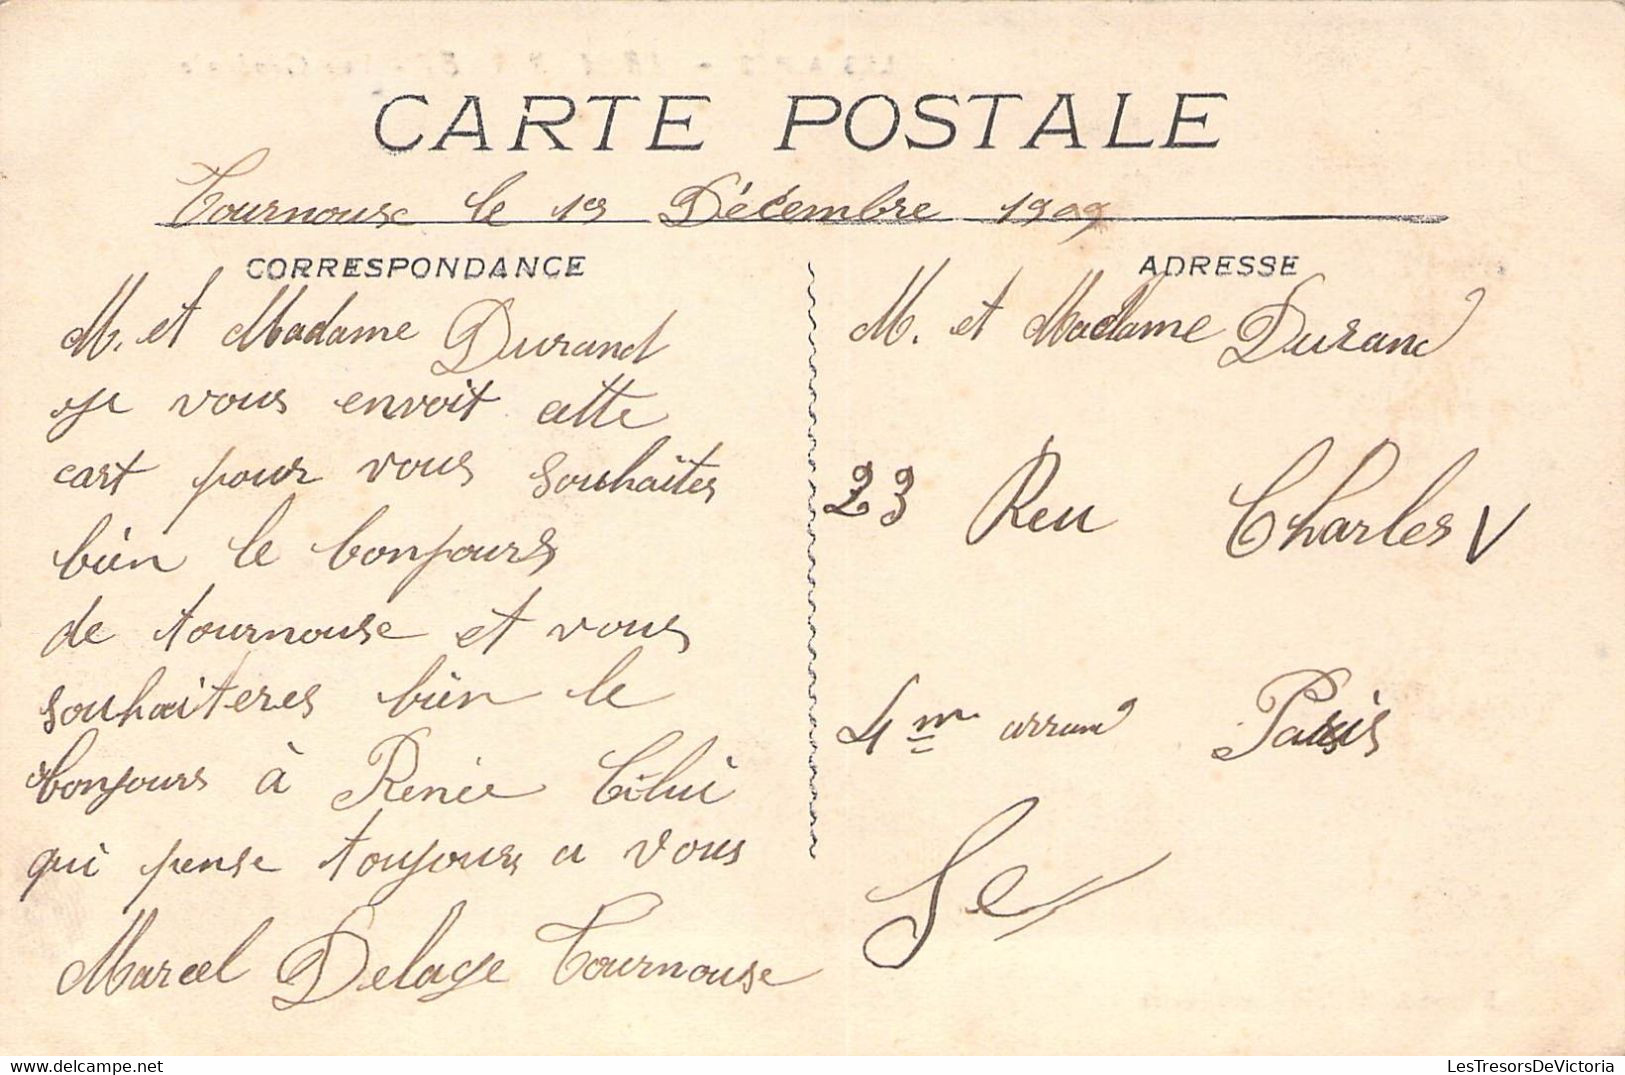 CARTE POSTALE
Tournouse le 1er Décembre 1909
CORRESPONDANCE
M. et Madame Durand
Je vous envoit cette
cart pour vous souhaiter
bien le bonjours
de tournouse et vous
souhaiteres bien le
bonjours à Renée Célui
qui pense toujours a vous
Marcel Delage Tournouse
ADRESSE
M. et Madame Durand
23 Reu Charles V
4m arrond Paris
Se
LesTresorsDeVictoria